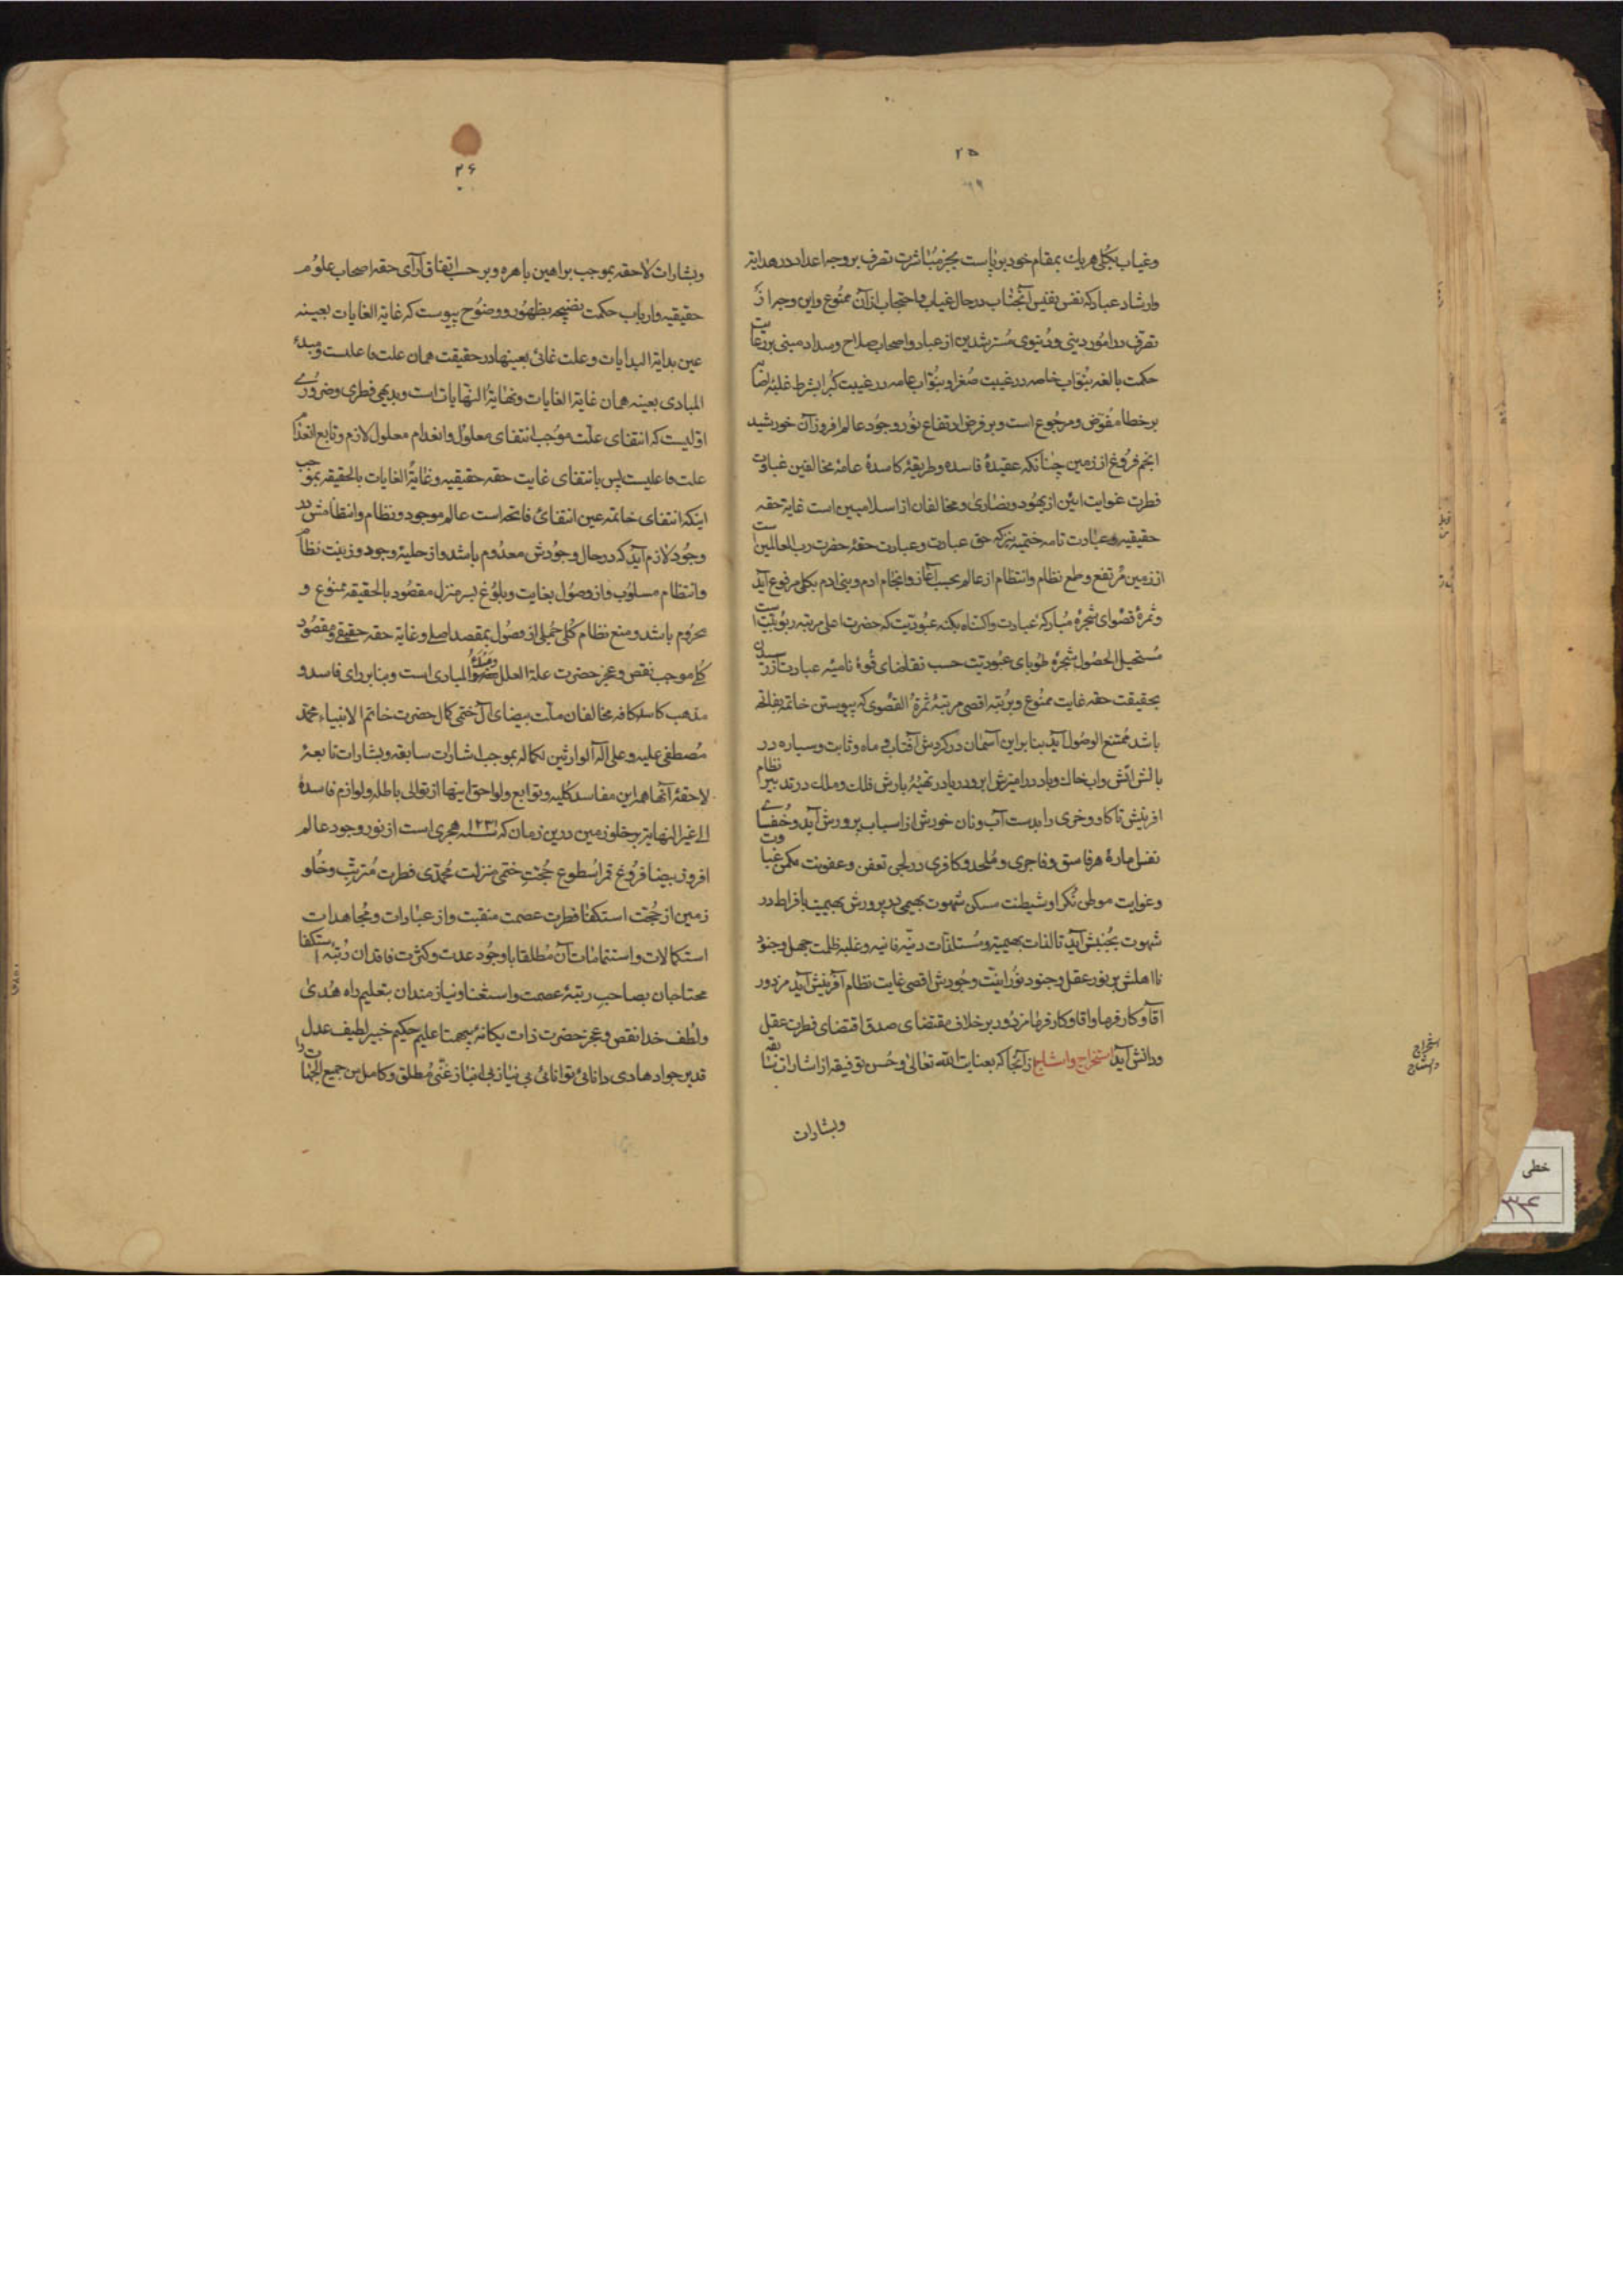 ۲۵
وغیاب بکلی هریك بمقام خود برپاست بجز مباشرت تصرف بروجه اعداد در هدایة
وارشاد عباد که نفس نفیس آنجناب در حال غیاب واحتجاب ازآن ممنوع واین وجه از
تصرف در امور دینی ودنیوی مسترشدین از عباد واصحاب صلاح وسداد مبنی بر رعایت
حکمت بالغه بنواب خاصه در غیبت صغرا وبنواب عامه در غیبت کبرا بشرط غلبه
برخطا مفوض ومرجوع است وبر فرض ارتفاع نور وجود عالم افروز آن خورشید
انجم فروغ از زمین چنانکه عقیدهٔ فاسده وطریقهٔ کاسدهٔ عامهٔ مخالفین غباوت
فطرت غوایت ائین از یهود ونصاری ومخالفان از اسلامیین است غایة حقه
حقیقیه وعبادت تامه ختمیه که حق عبادت وعبادت حقهٔ حضرت رب العالمین است
از زمین مرتفع وطمع نظام وانتظام از عالم بحسب آغاز وانجام ادم وبنی ادم بکلی مرفوع آید
وثمرهٔ قصوای شجرهٔ مبارکهٔ عبادت واکتناه بکنه عبودیت که حضرت اعلی مرتبه ربوبیت است
مستحیل الحصول شجرهٔ طوبای عبودیت حسب تقاضای قوهٔ نامیه عبادت از رسیدن
بحقیقت حقه غایت ممنوع وبرتبه اقصی مرتبهٔ ثمرة القصوی که پیوستن خاتمه بفاتحه
باشد ممتنع الوصول آید بنا براین آسمان در گردش آفتاب وماه وثابت وسیاره در
بالش آتش واب خاك وباد در امیزش ابر ودریا در تهیهٔ بارش فلك وملك در تدبیر نظام
افرینش تا گاو وخری را بدست آب ونان خورش از اسباب پرورش آید
نفس امارهٔ هر فاسق وفاجری وملحد وکافری در تعفن وعفونت مکمن غباوت
وغوایت موطن نکرا وشیطنت مسکن شهوت بهیمی در پرورش بهیمیت بافراط در
شهوت بجنبش آید تا لذات بهیمیه ومستلذات دنیه فانیه وغلبه ظلمت جهل وجنود
نااهلش بر نور عقل وجنود نورانیت وجودش اقصی غایت نظام آفرینش آید مزدور
آقا وکارفرما واقا وکارفرما مزدور بر خلاف مقتضای صدق اقتضای فطرت عقل
ودانش آید استخراج واستنتاج زآنجا که بعنایت الله تعالی وحسن توفیقه از اشارات سابقه
وبشارات
۲۶
وبشارات لاحقه بموجب براهین باهره وبر حسب اتفاق آرای حقه اصحاب علوم
حقیقیه وارباب حکمت نضیجه بظهور ووضوح پیوست که غایة الغایات بعینه
عین بدایة البدایات وعلت غائی بعینها در حقیقت همان علت فاعلیست ومبدء
المبادی بعینه همان غایة الغایات ونهایة النهایات است وبدیهی فطری وضروری
اولیست که انتفای علت موجب انتفای معلول وانعدام معلول لازم وتابع انعدام
علت فاعلیست پس بانتفای غایت حقه حقیقیه وغایة الغایات بالحقیقه بموجب
اینکه انتفای خاتمه عین انتفای فاتحه است عالم موجود ونظام وانتظامش در
وجود لازم آید که در حال وجودش معدوم باشد واز حلیهٔ وجود وزینت نظام
وانتظام مسلوب واز وصول بغایت وبلوغ بسر منزل مقصود بالحقیقه ممنوع و
محروم باشد ومنع نظام کلی جملی از وصول بمقصد اصلی وغایة حقه حقیقی ومقصود
کلی موجب نقص وعجز حضرت علة العلل ومبدء المبادی است وبنابر رای فاسد و
مذهب کاسد کافه مخالفان ملت بیضای آل ختمی کمال حضرت خاتم الانبیاء محمد
مصطفی علیه وعلی آله الوارثین لکماله بموجب اشارات سابقه وبشارات تابعهٔ
لاحقهٔ آنها همه این مفاسد کلیه وتوابع ولواحق اینها از توالی باطله ولوازم فاسدهٔ
الی غیر النهایه بر خلو زمین درین زمان که سنه ۱۲۳۱ هجری است از نور وجود عالم
افروز بیضا فروغ قمر سطوع حجت ختمی منزلت محمدی فطرت مترتب وخلو
زمین از حجت استکفا فطرت عصمت منقبت واز عبادات ومجاهدات
استکمالات واستتمامات آن مطلقا با وجود عدت وکثرت فاقدان رتبه استکفا
محتاجان بصاحب رتبهٔ عصمت واستغنا ونیازمندان بتعلیم راه هدی
ولطف خدا نقص وعجز حضرت ذات یکانه بیهمتا علیم حکیم خبیر لطیف عدل
قدیر جواد هادی دانائی توانائی بی نیاز بی انباز غنی مطلق وکامل من جمیع الجهات را
استخراج
واستنتاج
خطی